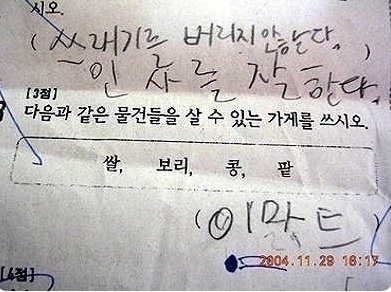 시오.
( 쓰래기를 버리지 안한다.
인사를 잘한다.
[3점]
다음과 같은 물건들을 살 수 있는 가게를 쓰시오.
쌀, 보리, 콩, 팥
( 이마트 )
2004.11.29 16:17
[4점]